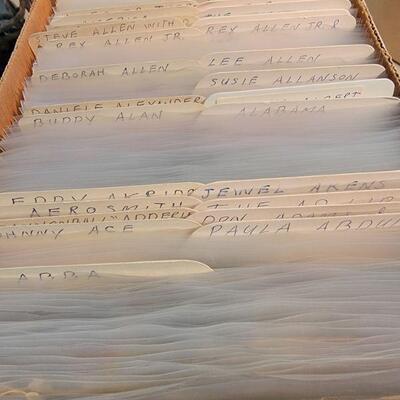 STEVE ALLEN WITH
REX ALLEN JR. &
REX ALLEN JR.
LEE ALLEN
DEBORAH ALLEN
SUSIE ALLANSON
DANIELE ALEXANDER
BUDDY ALAN
ALABAMA
EDDY
JEWEL AKENS
AEROSMITH
THE
DON ADAMS &
JOHNNY ACE
PAULA ABDUL
ABBA